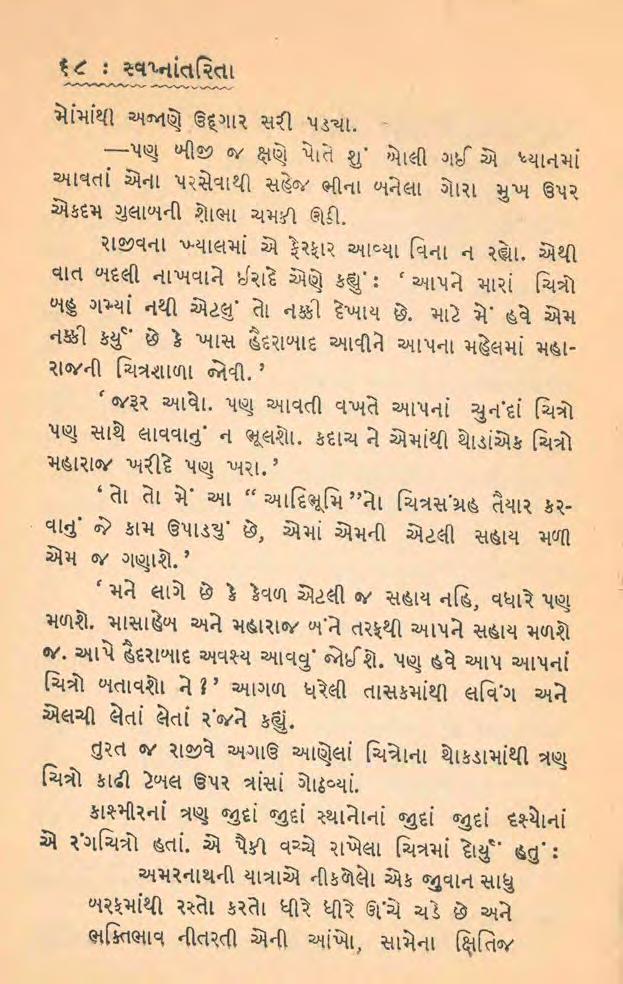 ૬૮ : સ્વપ્નાંતરિતા
મોંમાંથી અજાણે ઉદ્ગાર સરી પડ્યા.
—પણ બીજી જ ક્ષણે પોતે શું બોલી ગઈ એ ધ્યાનમાં
આવતાં એના પરસેવાથી સહેજ ભીના બનેલા ગોરા મુખ ઉપર
એકદમ ગુલાબની શોભા ચમકી ઊઠી.
રાજીવના ખ્યાલમાં એ ફેરફાર આવ્યા વિના ન રહ્યો. એથી
વાત બદલી નાખવાને ઈરાદે એણે કહ્યું : ‘ આપને મારાં ચિત્રો
બહુ ગમ્યાં નથી એટલું તો નક્કી દેખાય છે. માટે મેં હવે એમ
નક્કી કર્યું છે કે ખાસ હૈદરાબાદ આવીને આપના મહેલમાં મહા-
રાજની ચિત્રશાળા જોવી. ’
‘ જરૂર આવો. પણ આવતી વખતે આપનાં ચુનંદાં ચિત્રો
પણ સાથે લાવવાનું ન ભૂલશો. કદાચ ને એમાંથી થોડાંએક ચિત્રો
મહારાજ ખરીદે પણ ખરા. ’
‘ તો તો મેં આ “ આદિભૂમિ ”નો ચિત્રસંગ્રહ તૈયાર કર-
વાનું જે કામ ઉપાડ્યું છે, એમાં એમની એટલી સહાય મળી
એમ જ ગણાશે. ’
‘ મને લાગે છે કે કેવળ એટલી જ સહાય નહિ, વધારે પણ
મળશે. માસાહેબ અને મહારાજ બંને તરફથી આપને સહાય મળશે
જ. આપે હૈદરાબાદ અવશ્ય આવવું જોઈશે. પણ હવે આપ આપનાં
ચિત્રો બતાવશો ને ? ’ આગળ ધરેલી તાસકમાંથી લવિંગ અને
એલચી લેતાં લેતાં રંજને કહ્યું.
તુરત જ રાજીવે અગાઉ આણેલાં ચિત્રોના થોકડામાંથી ત્રણ
ચિત્રો કાઢી ટેબલ ઉપર ત્રાંસાં ગોઠવ્યાં.
કાશ્મીરનાં ત્રણ જુદાં જુદાં સ્થાનોનાં જુદાં જુદાં દશ્યોનાં
એ રંગચિત્રો હતાં. એ પૈકી વચ્ચે રાખેલા ચિત્રમાં દોર્યું હતું :
અમરનાથની યાત્રાએ નીકળેલો એક જુવાન સાધુ
બરફમાંથી રસ્તો કરતો ધીરે ધીરે ઊંચે ચડે છે અને
ભક્તિભાવ નીતરતી એની આંખો, સામેના ક્ષિતિજ